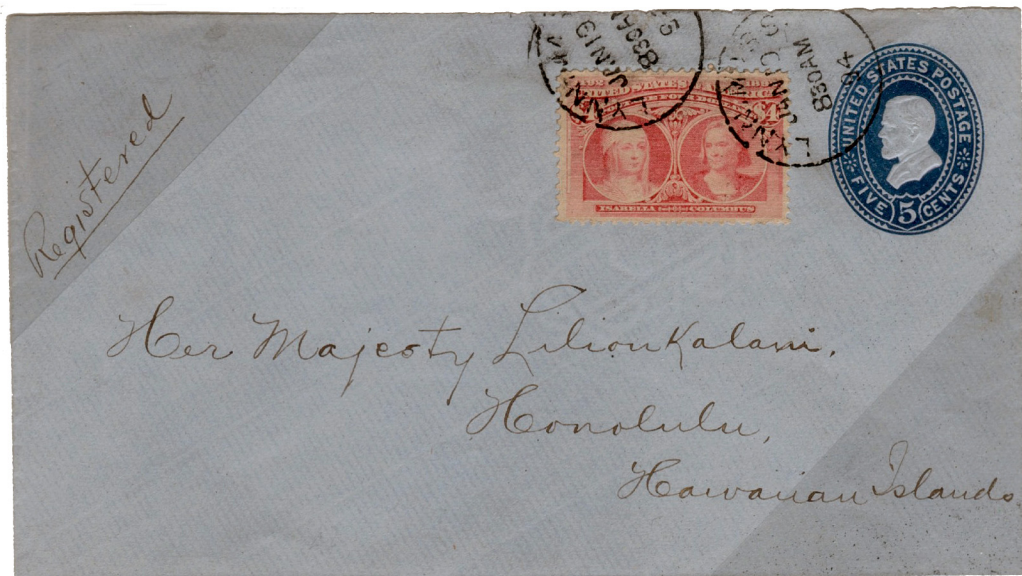 Registered
LYNN
JAN 19
830 AM
94
LYNN
JAN 19
830 AM
UNITED STATES POSTAGE
FIVE 5 CENTS
$4
ISABELLA COLUMBUS
Her Majesty Lilioukalani.
Honolulu,
Hawaiian Islands